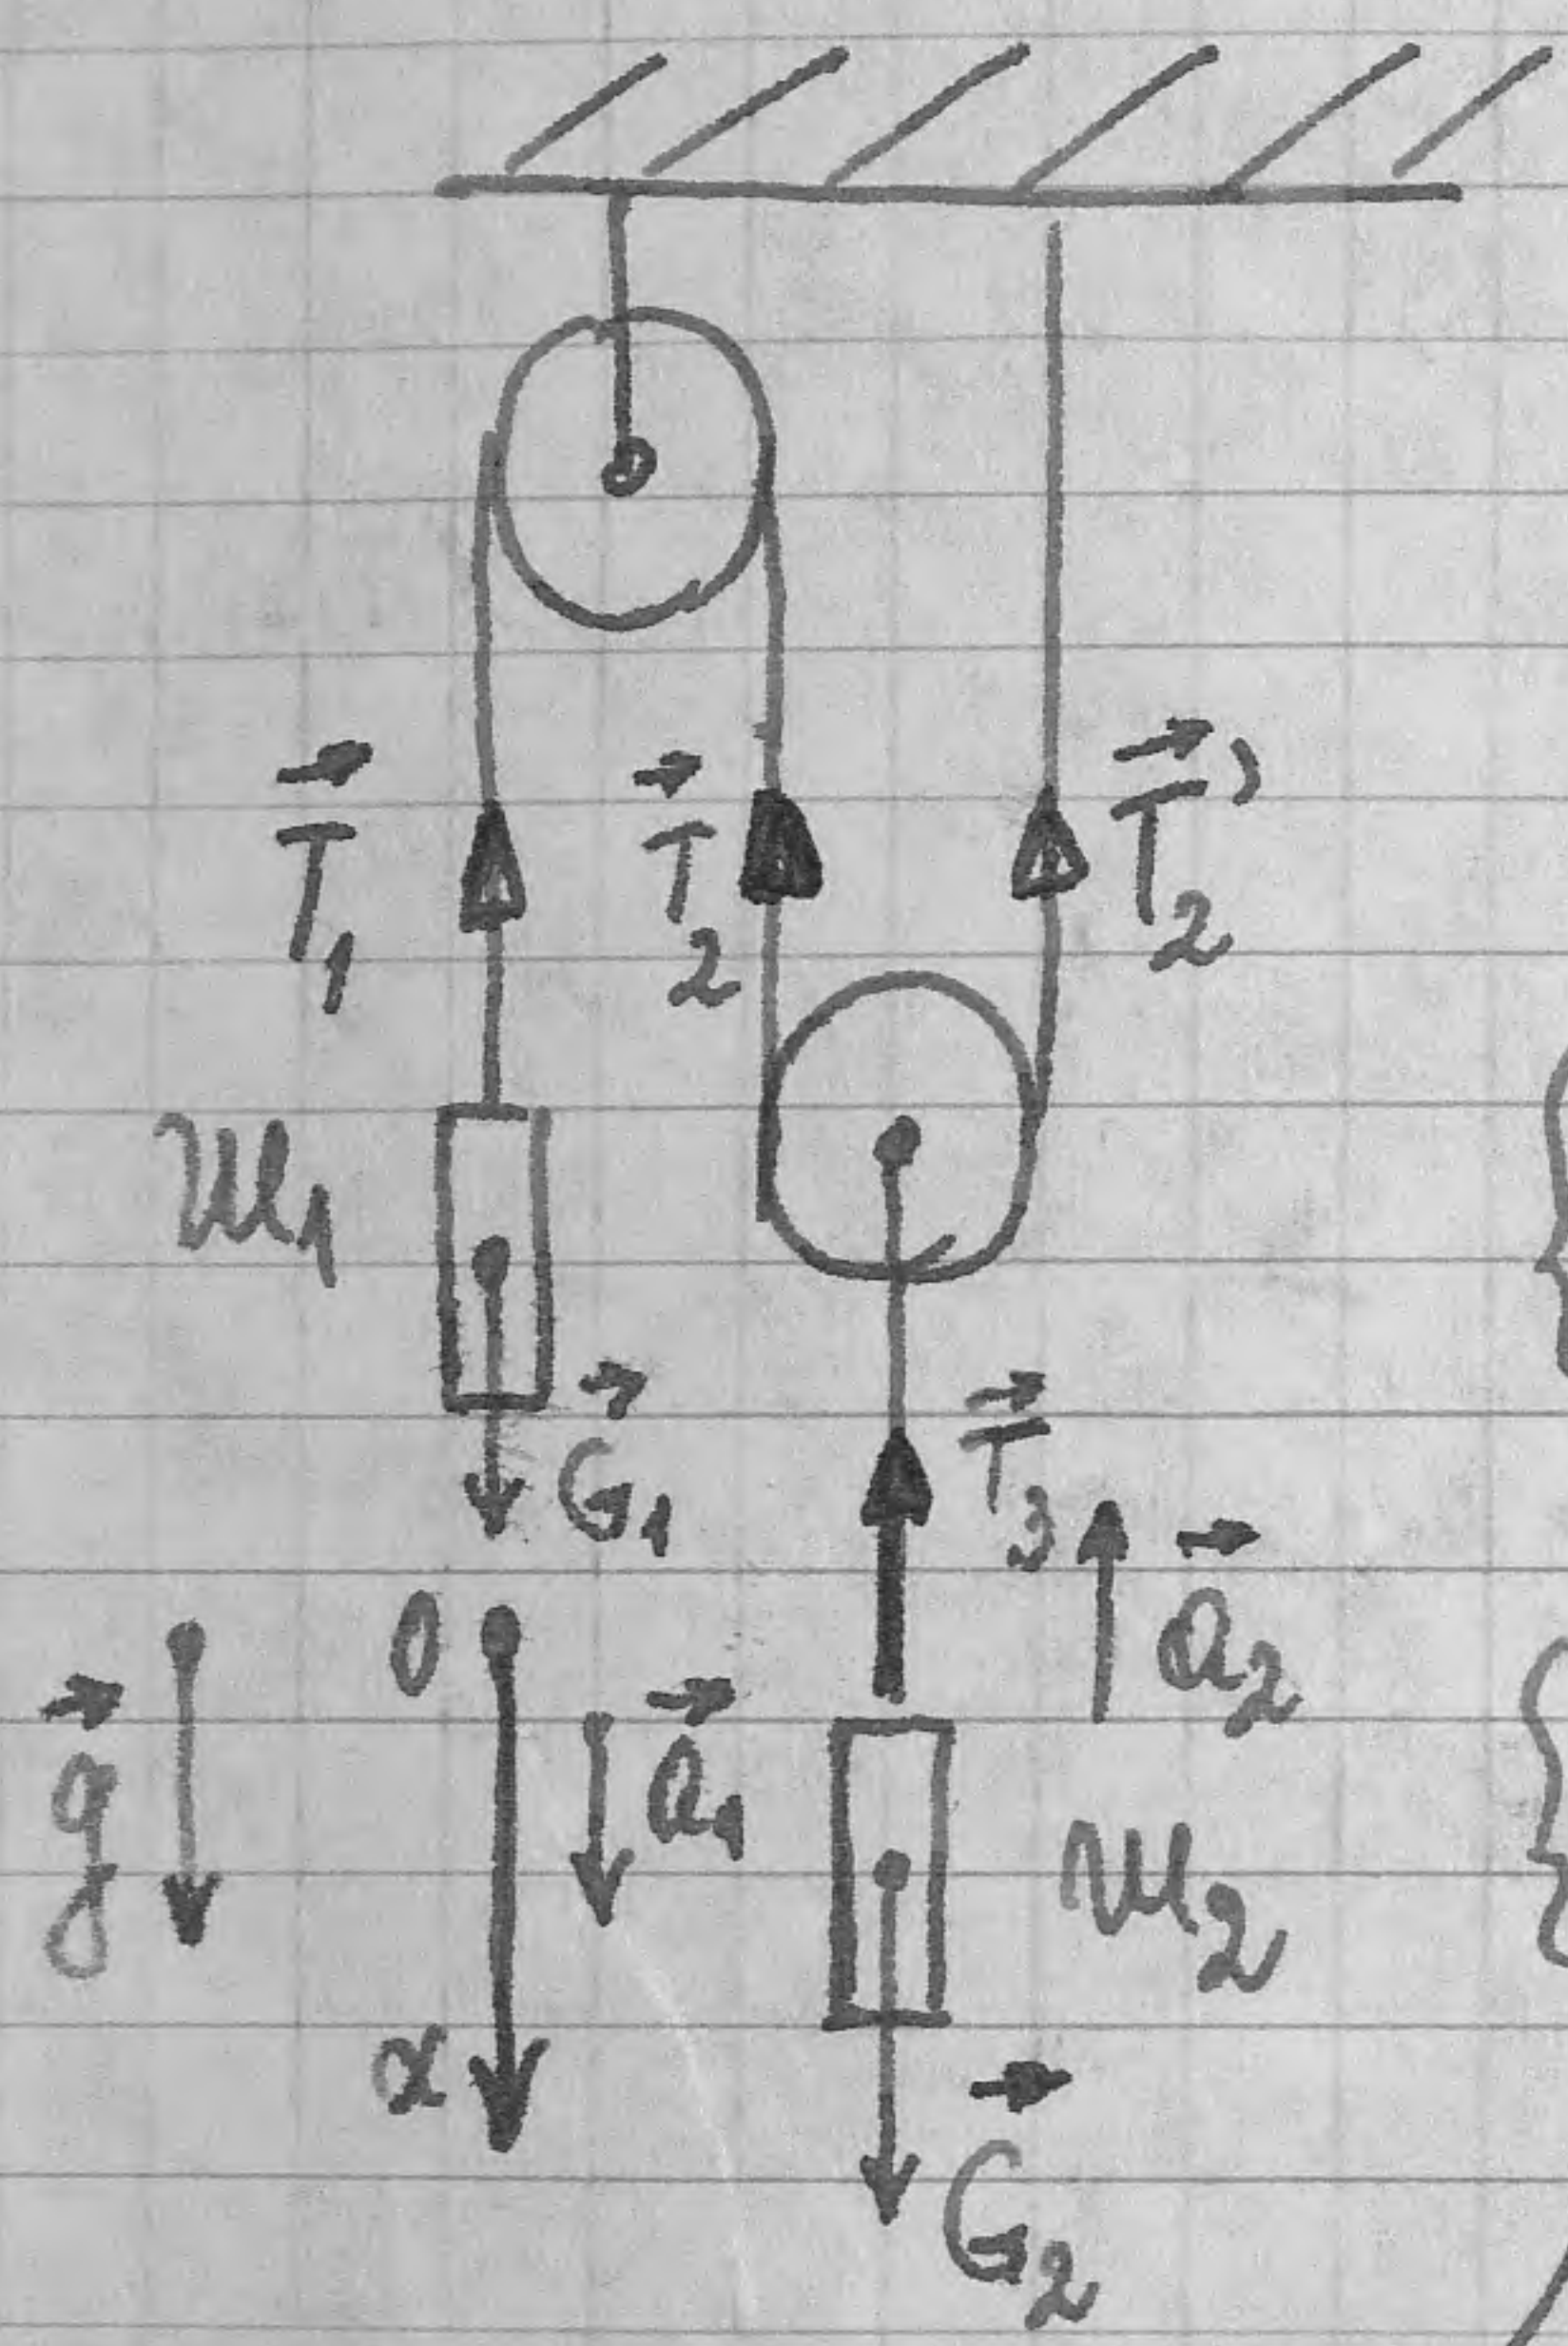 T⃗₁ T⃗₂ T⃗₂'
m₁
G⃗₁ T⃗₃
O a⃗₂
g⃗ a⃗₁ m₂
x
G⃗₂